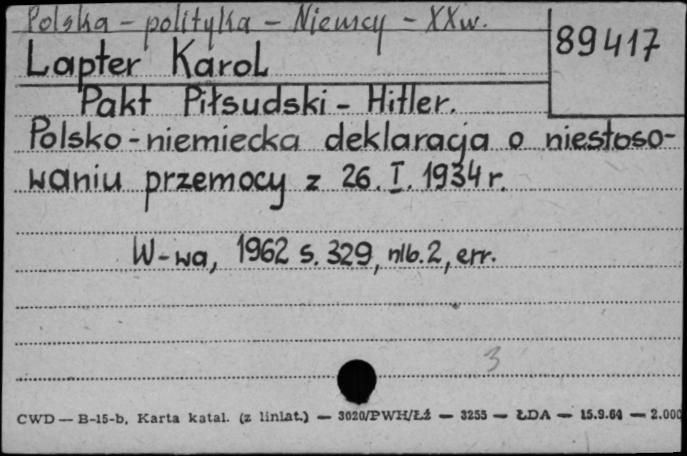 Polska - polityka - Niemcy - XX w.
89417
Lapter Karol
Pakt Piłsudski - Hitler.
Polsko - niemiecka deklaracja o niestoso-
waniu przemocy z 26. I. 1934 r.
W-wa, 1962 s. 329, nlb. 2, err.
3
CWD — B-15-b, Karta katal. (z liniat.) — 3020/PWH/Łź — 3255 — ŁDA — 15.9.64 — 2.000